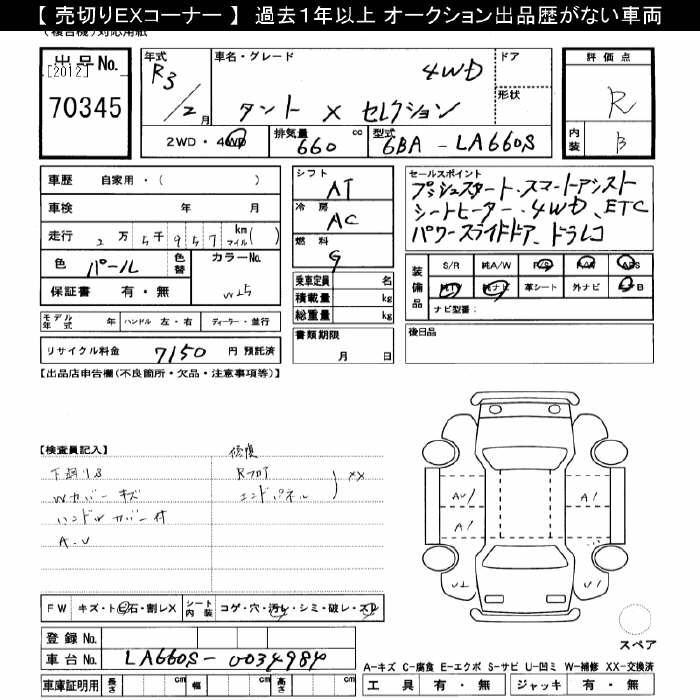 【 売切りEXコーナー 】 過去1年以上 オークション出品歴がない車両
(複合機)対応用紙
出品No.
[2012]
70345
年式 R3/2月
車名・グレード
タント X セレクション
4WD
ドア
形状
2WD・4WD
排気量 660 cc
型式 6BA - LA660S
評価点
R
内装 B
車歴 自家用・( )
車検 年 月
走行 2万5千957 km マイル( )
色 パール 色替
カラーNo. W25
保証書 有・無
モデル年式 年 ハンドル 左・右 ディーラー・並行
リサイクル料金 7150 円 預託済
シフト AT
冷房 AC
燃料 G
乗車定員 名
積載量 kg
総重量 kg
書類期限 月 日
セールスポイント
プッシュスタート・スマートアシスト
シートヒーター・4WD、ETC
パワースライドドア、ドラレコ
装備品
S/R 純A/W P/S P/W ABS
純TV 純ナビ 革シート 外ナビ A/B
ナビ型番:
後日品
【出品店申告欄(不良箇所・欠品・注意事項等)】
【検査員記入】
下廻りS
Wカバーキズ
ハンドルカバー付
A.U
修復
Rフロア
エンドパネル
XX
AU
A1
A1
U1
U1
スペア
FW キズ・ト石・割レX
シート内装 コゲ・穴・汚レ・シミ・破レ・スレ
登録No.
車台No. LA660S-0034984
車庫証明用 長さ cm 幅 cm 高さ cm
A-キズ C-腐食 E-エクボ S-サビ U-凹ミ W-補修 XX-交換済
工具 有・無 ジャッキ 有・無